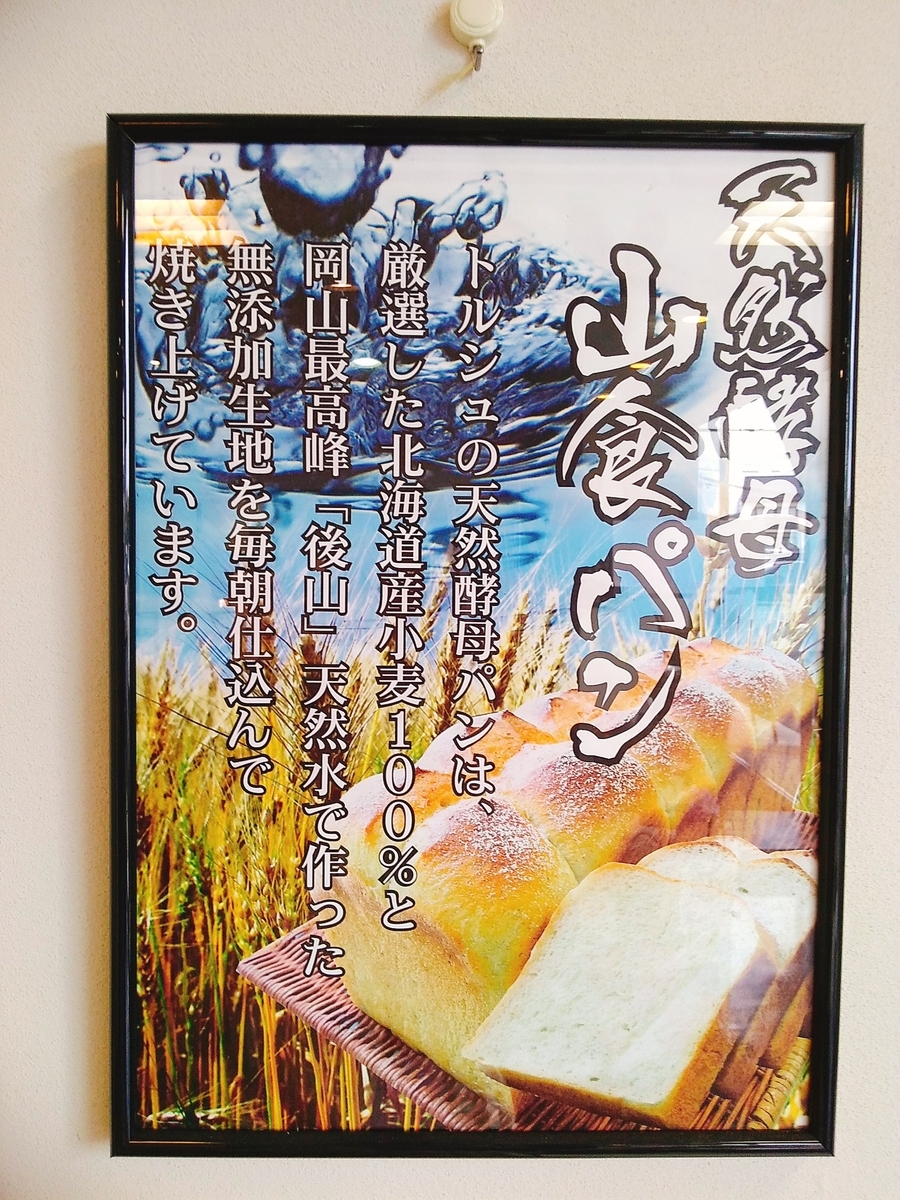 天然酵母
山食パン
トルシュの天然酵母パンは、
厳選した北海道産小麦１００％と
岡山最高峰「後山」天然水で作った
無添加生地を毎朝仕込んで
焼き上げています。